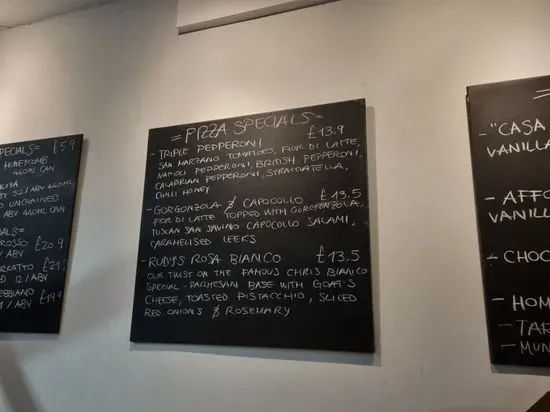 SPECIALS= £5.9
HONEYCOMB
440ML CAN
ABV 440ML
UNCHAINED
ABV 440ML CAN
ROSSO £20.9
/ ABV
12 / ABV
/ ABV
= PIZZA SPECIALS =
- TRIPLE PEPPERONI £13.9
SAN MARZANO TOMATOES, FIOR DI LATTE,
NAPOLI PEPPERONI, BRITISH PEPPERONI,
CALABRIAN PEPPERONI, STRACCIATELLA,
CHILLI HONEY
- GORGONZOLA & CAPOCOLLO £13.5
FIOR DI LATTE TOPPED WITH GORGONZOLA,
TUSCAN SAN SAVINO CAPOCOLLO SALAMI,
CARAMELISED LEEKS
- RUDYS ROSA BIANCO £13,5
OUR TWIST ON THE FAMOUS CHRIS BIANCO
SPECIAL - PARMESAN BASE WITH GOAT'S
CHEESE, TOASTED PISTACCHIO, SLICED
RED ONIONS & ROSEMARY
- "CASA
VANILLA
- AFFO
VANILL
- CHOC
- HOM
- TAR
- MUN